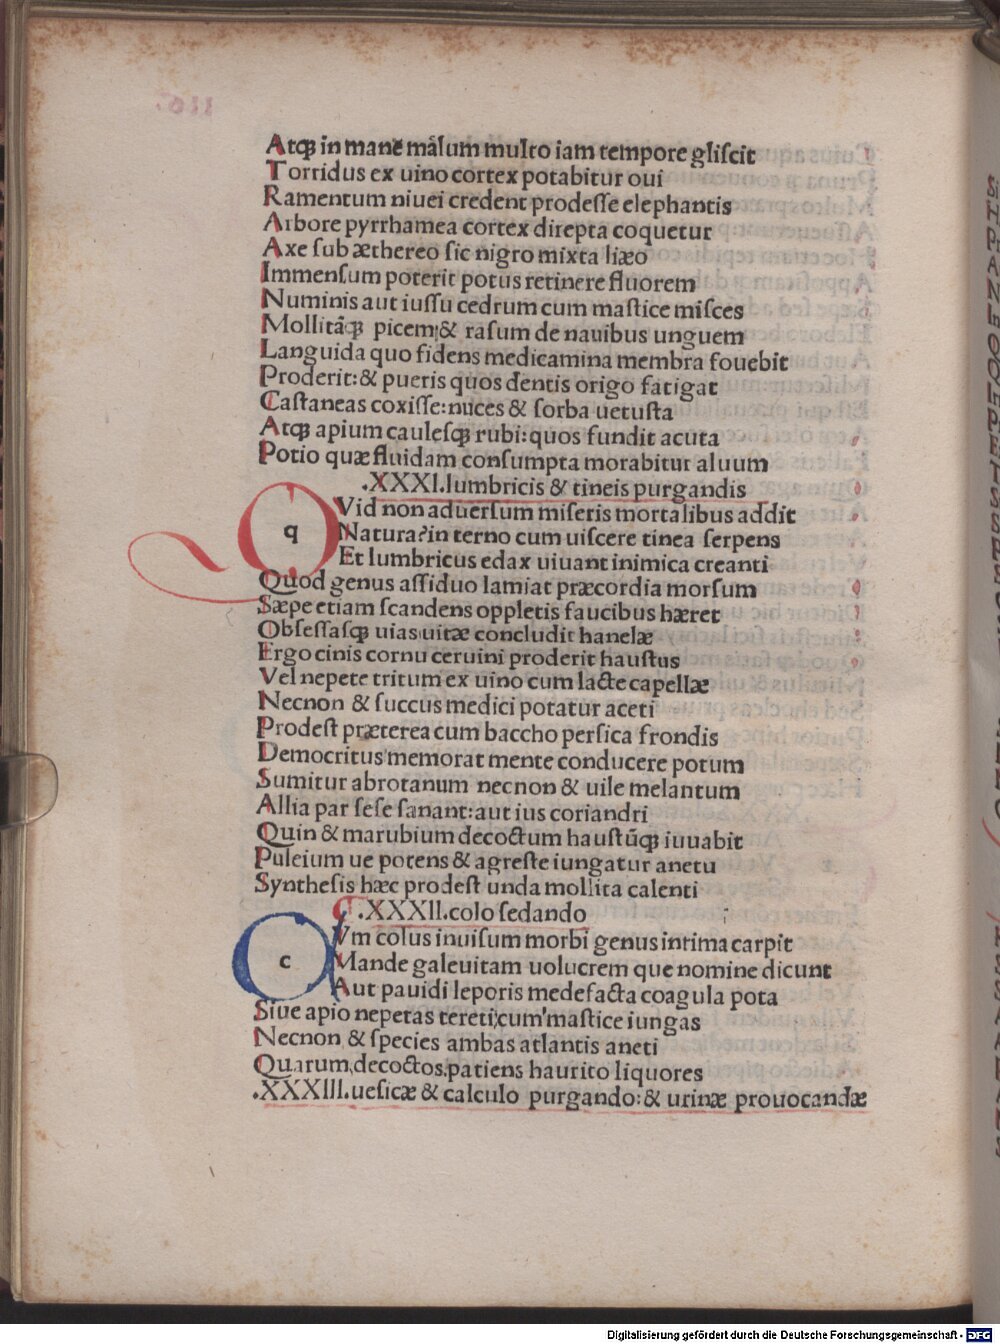 Atqꝫ in mane malum multo iam tempore gliſcit
Torridus ex uino cortex potabitur oui
Ramentum niuei credent prodeſſe elephantis
Arbore pyrrhamea cortex direpta coquetur
Axe ſub æthereo ſic nigro mixta liæo
Immenſum poterit potus retinere fluorem
Numinis aut iuſſu cedrum cum maſtice miſces
Mollitāqꝫ picem: & raſum de nauibus unguem
Languida quo fidens medicamina membra fouebit
Proderit: & pueris quos dentis origo fatigat
Caſtaneas coxiſſe: nuces & ſorba uetuſta
Atqꝫ apium cauleſqꝫ rubi: quos fundit acuta
Potio quæ fluidam conſumpta morabitur aluum
.XXXI. lumbricis & tineis purgandis
q Vid non aduerſum miſeris mortalibus addit
Natura? in terno cum uiſcere tinea ſerpens
Et lumbricus edax uiuant inimica creanti
Quod genus aſſiduo lamiat præcordia morſum
Sæpe etiam ſcandens oppletis faucibus hæret
Obſeſſaſqꝫ uias uitæ concludit hanelæ
Ergo cinis cornu ceruini proderit hauſtus
Vel nepete tritum ex uino cum lacte capellæ
Necnon & ſuccus medici potatur aceti
Prodeſt præterea cum baccho perſica frondis
Democritus memorat mente conducere potum
Sumitur abrotanum necnon & uile melantum
Allia par ſeſe ſanant: aut ius coriandri
Quin & marubium decoctum hauſtūqꝫ iuuabit
Puleium ue potens & agreſte iungatur anetu
Syntheſis hæc prodeſt unda mollita calenti
.XXXII. colo ſedando
c Vm colus inuiſum morbi genus intima carpit
Mande galeuitam uolucrem que nomine dicunt
Aut pauidi leporis medefacta coagula pota
Siue apio nepetas tereti; cum maſtice iungas
Necnon & ſpecies ambas atlantis aneti
Quarum decoctos patiens haurito liquores
.XXXIII. ueſicæ & calculo purgando: & urinæ prouocandæ
Digitalisierung gefördert durch die Deutsche Forschungsgemeinschaft - DFG